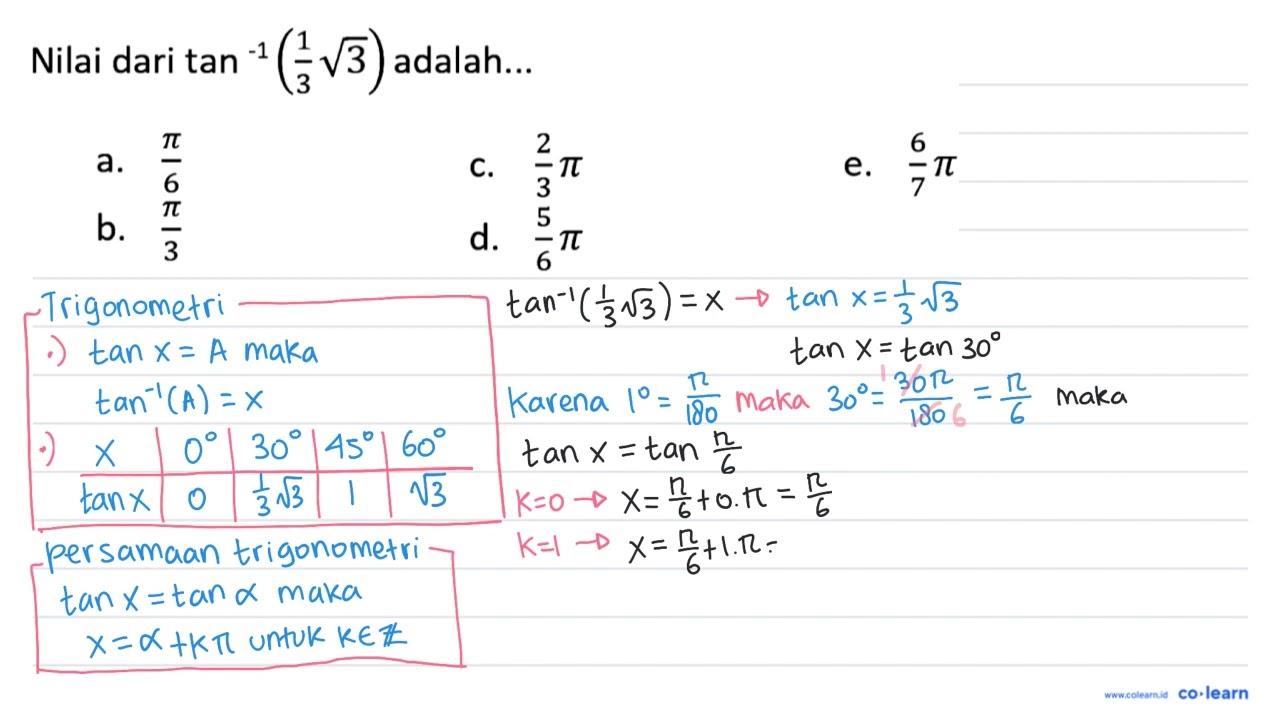 Nilai dari tan ⁻¹ (1/3 √3) adalah...
a. π/6
b. π/3
c. 2/3 π
d. 5/6 π
e. 6/7 π
Trigonometri
•) tan x = A maka
tan⁻¹(A) = x
•) x | 0° | 30° | 45° | 60°
tan x | 0 | 1/3 √3 | 1 | √3
persamaan trigonometri
tan x = tan α maka
x = α + kπ untuk k ∈ ℤ
tan⁻¹(1/3 √3) = x → tan x = 1/3 √3
tan x = tan 30°
Karena 1° = π/180 maka 30° = 30π/180 1 6 = π/6 maka
tan x = tan π/6
k=0 → x = π/6 + 0.π = π/6
k=1 → x = π/6 + 1.π =
www.colearn.id co·learn